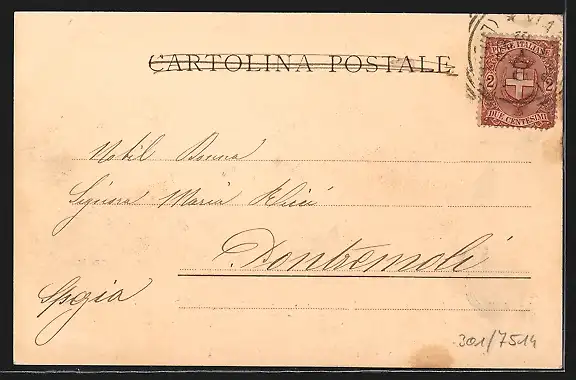 CARTOLINA POSTALE
POSTE ITALIANE
2 2
DUE CENTESIMI
Nobil Donna
Signora Maria
Pontremoli
Spezia
301/7514